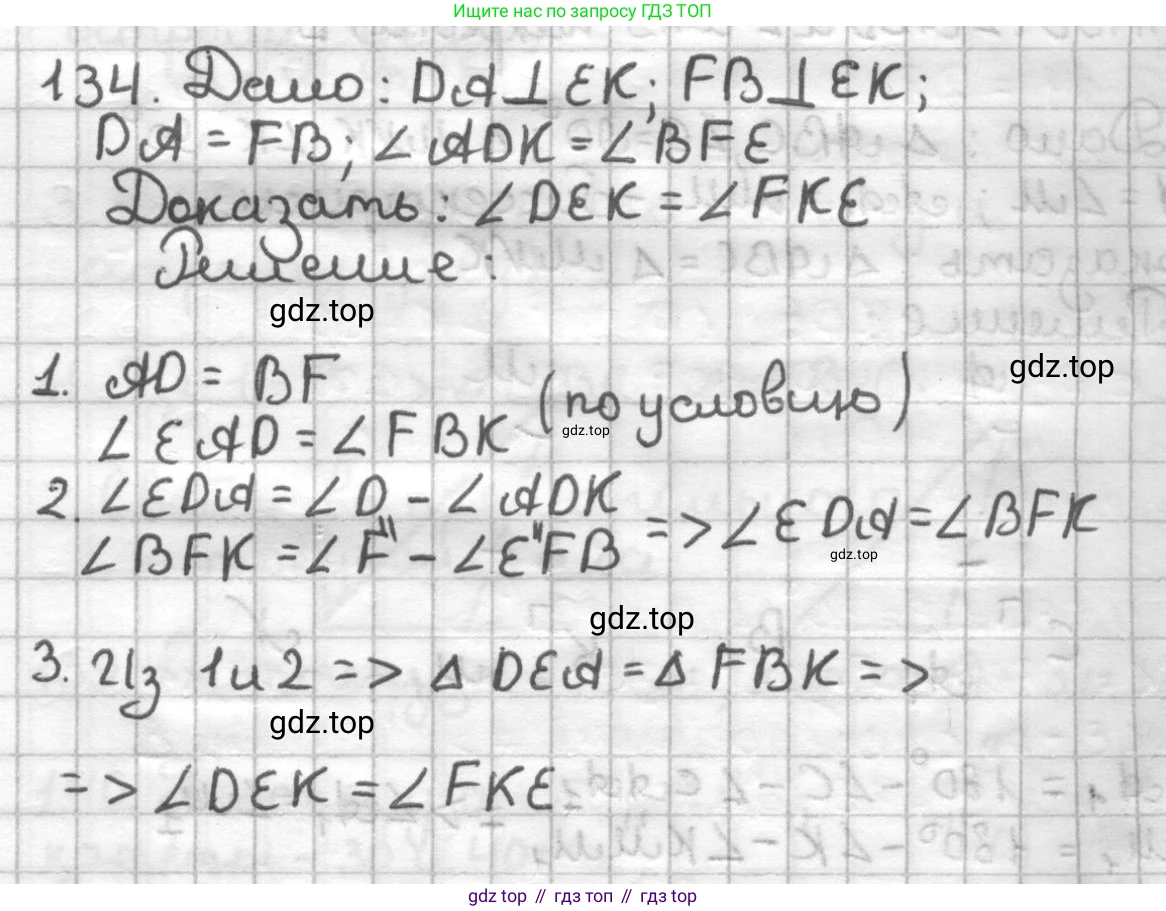 Ищите нас по запросу ГДЗ ТОП
134. Дано: DA⊥EK; FB⊥EK;
DA = FB; ∠ADK = ∠BFE
Доказать: ∠DEK = ∠FKE
Решение:
gdz.top
1. AD = BF
gdz.top
∠EAD = ∠FBK (по условию)
gdz.top
2. ∠EDA = ∠D - ∠ADK
∠BFK = ∠F - ∠EFB => ∠EDA = ∠BFK
gdz.top
gdz.top
3. Из 1 и 2 => Δ DEA = Δ FBK =>
gdz.top
=> ∠DEK = ∠FKE
gdz top // гдз топ // гдз top